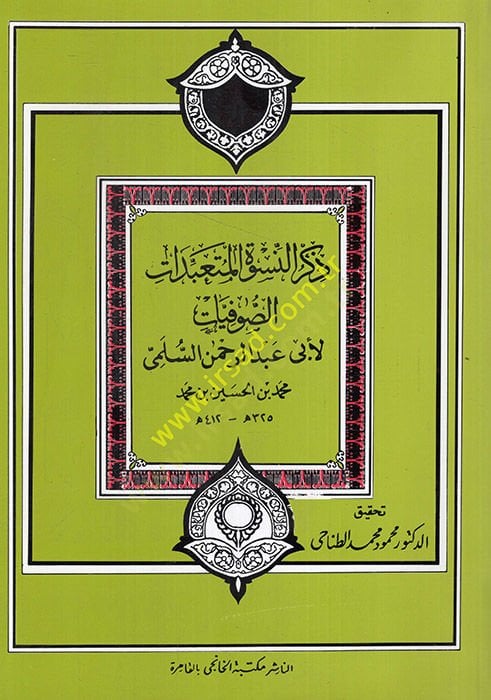 ذكر النسوة المتعبدات
الصوفيات
لأبى عبد الرحمن السلمى
محمد بن الحسين بن محمد
٣٢٥ هـ - ٤١٢ هـ
تحقيق
الدكتور محمود محمد الطناحى
الناشر مكتبة الخانجى بالقاهرة
www.irsad.com.tr